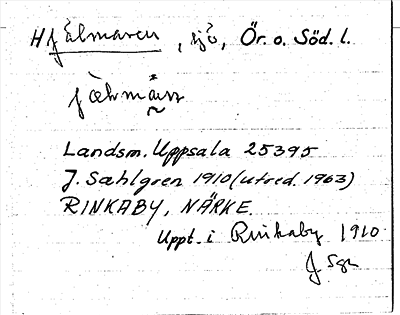 Hjälmaren, sjö, Ör. o. Söd. l.
Landsm. Uppsala 25395
J. Sahlgren 1910 (utred. 1963)
RINKABY, NÄRKE.
Uppt. i Rinkaby 1910
J Sgn